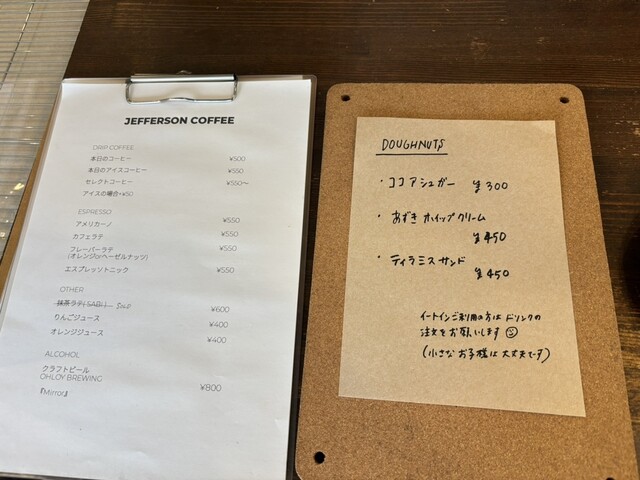 JEFFERSON COFFEE
DRIP COFFEE
本日のコーヒー ¥500
本日のアイスコーヒー ¥550
セレクトコーヒー ¥550〜
アイスの場合+¥50
ESPRESSO
アメリカーノ ¥550
カフェラテ ¥550
フレーバーラテ ¥550
(オレンジorヘーゼルナッツ)
エスプレッソトニック ¥550
OTHER
抹茶ラテ( SABI ) SOLD ¥600
りんごジュース ¥400
オレンジジュース ¥400
ALCOHOL
クラフトビール ¥800
OHLOY BREWING
『Mirror』
DOUGHNUTS
・ココアシュガー ¥300
・あずきホイップクリーム
¥450
・ティラミスサンド
¥450
イートインご利用の方はドリンクの
注文をお願いします
(小さなお子様は大丈夫です)